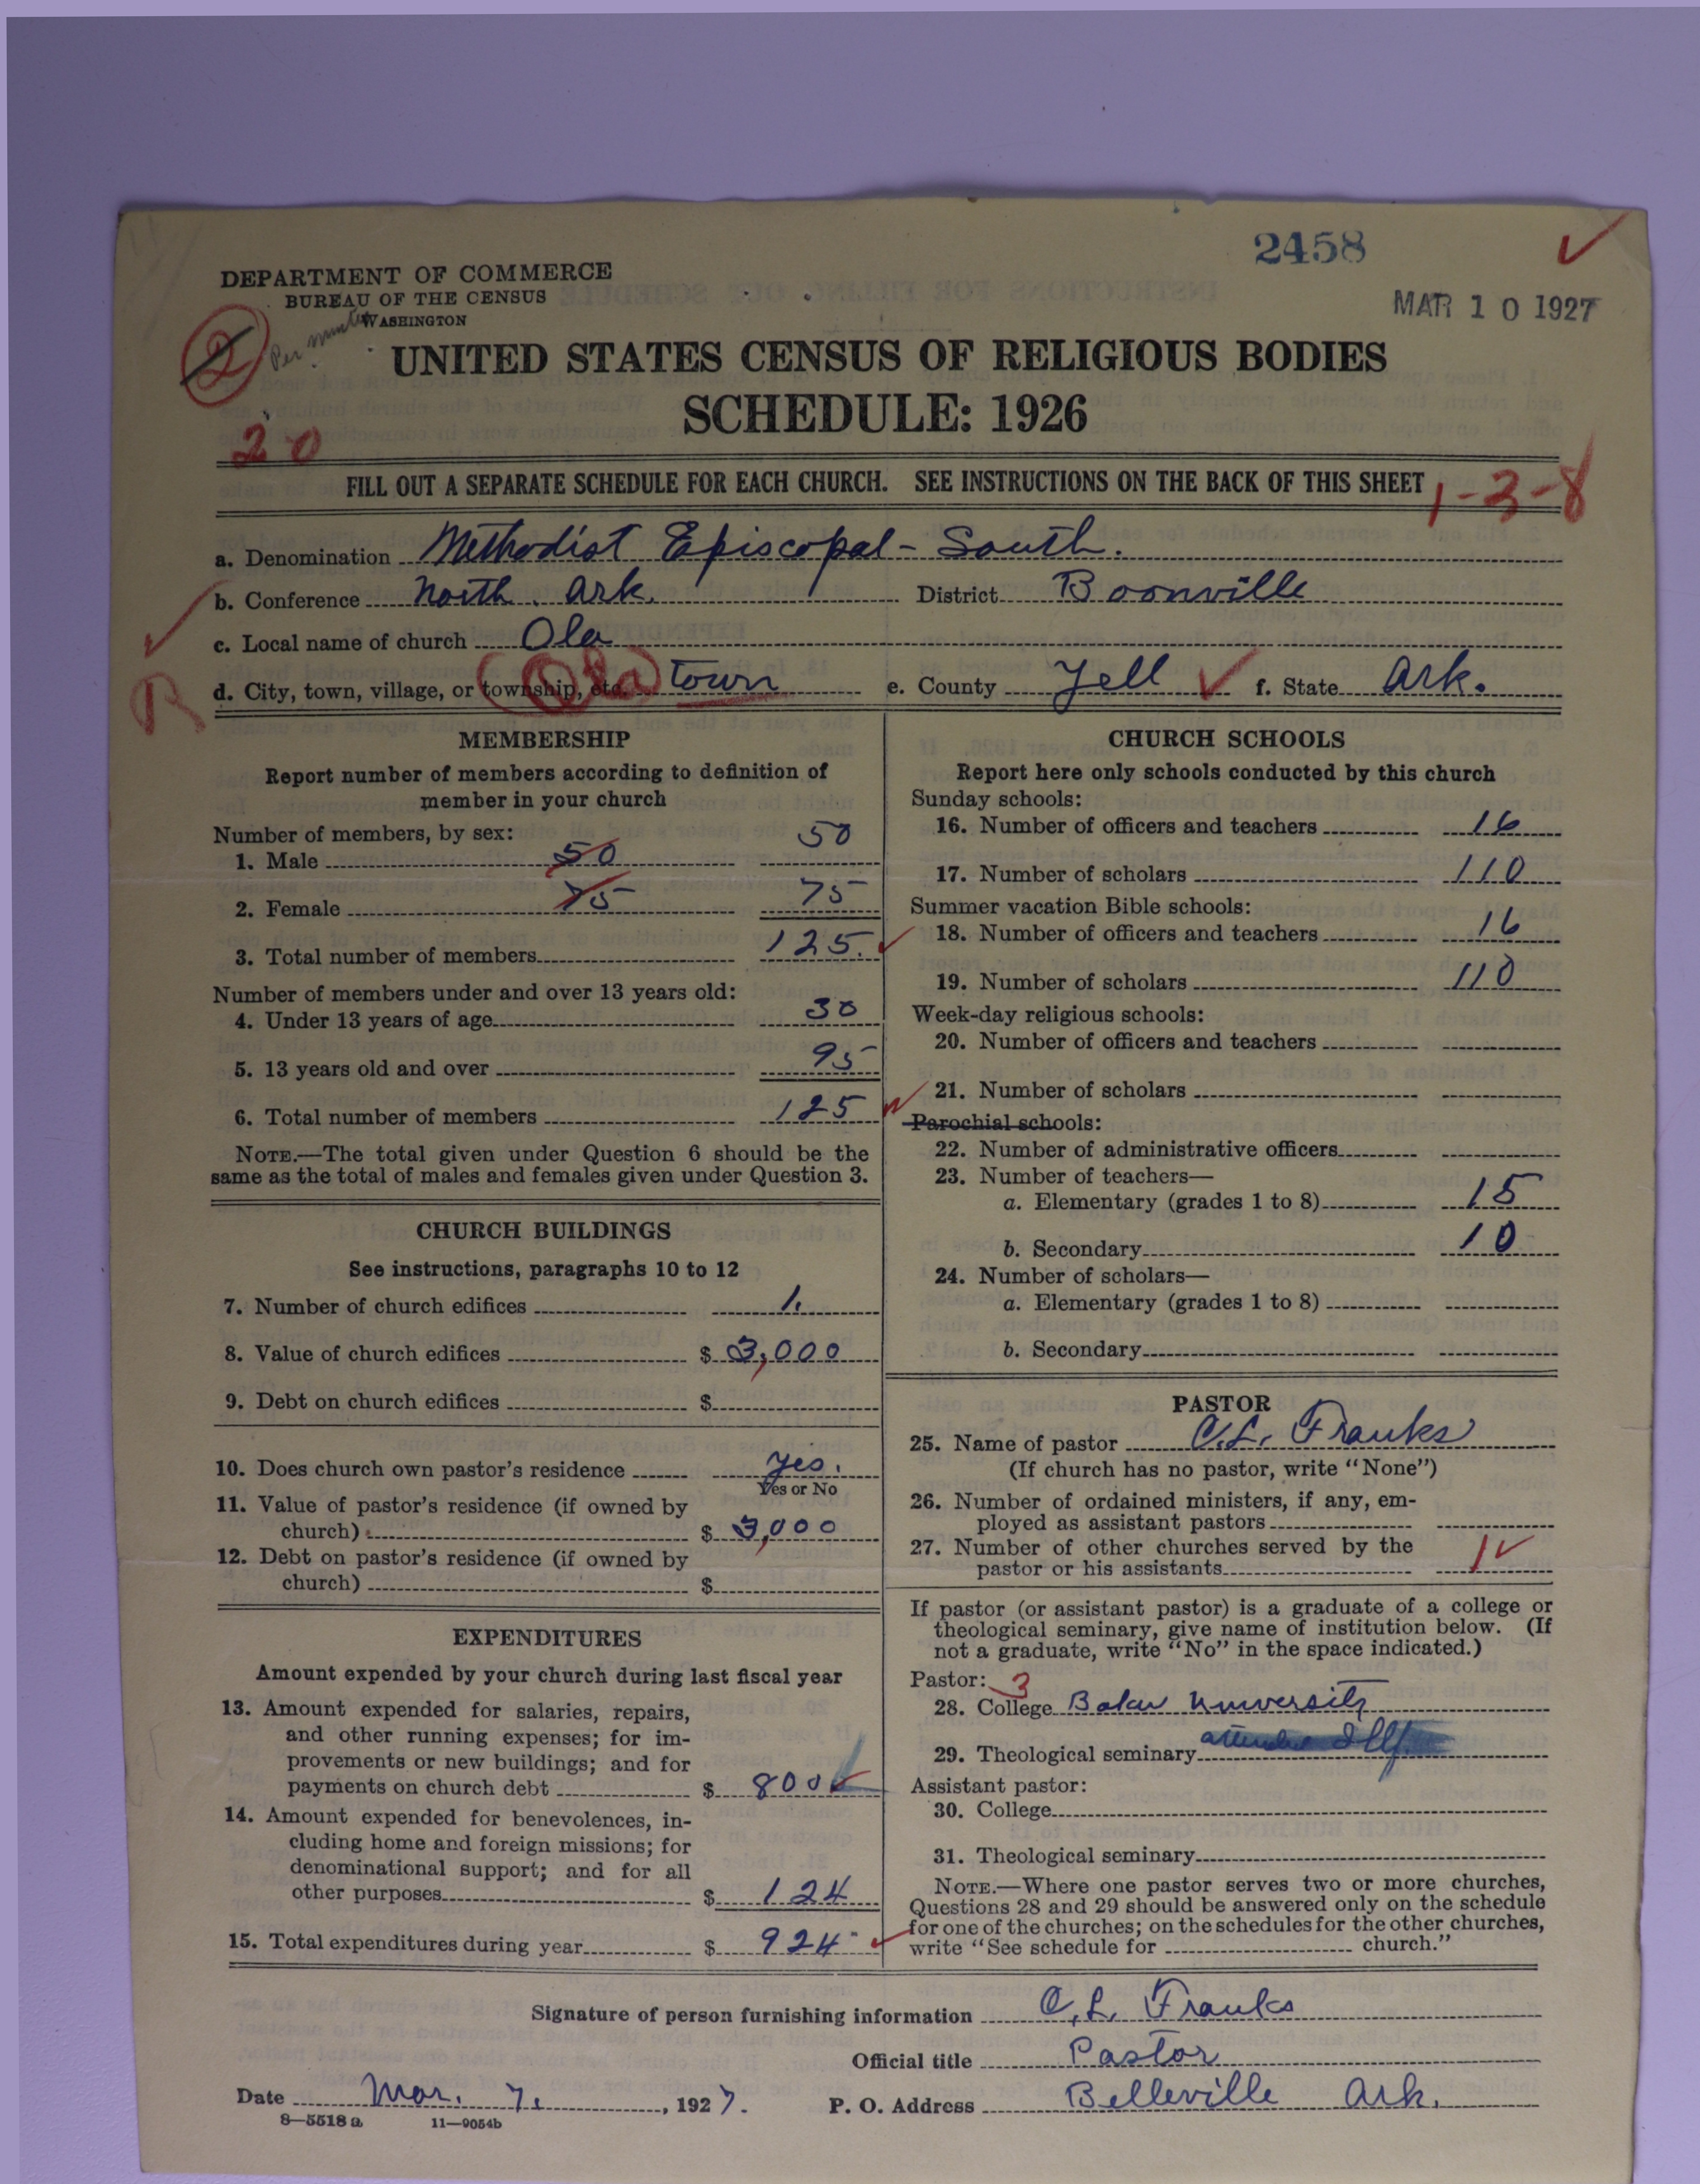 2458
DEPARTMENT OF COMMERCE
BUREAU OF THE CENSUS
WASHINGTON
MAR 10 1927
2
Per
UNITED STATES CENSUS OF RELIGIOUS BODIES
SCHEDULE: 1926
20
FILL OUT A SEPARATE SCHEDULE FOR EACH CHURCH. SEE INSTRUCTIONS ON THE BACK OF THIS SHEET
1-3-8
a. Denomination Methodist Episcopal - South.
b. Conference North. Ark. District Boonville
c. Local name of church Ola
d. City, town, village, or township, etc. Ola town e. County Yell f. State Ark.
R
MEMBERSHIP
Report number of members according to definition of
member in your church
Number of members, by sex:
1. Male 50 50
2. Female 75 75
3. Total number of members 125.
Number of members under and over 13 years old:
4. Under 13 years of age 30
5. 13 years old and over 95
6. Total number of members 125
NOTE.—The total given under Question 6 should be the
same as the total of males and females given under Question 3.
CHURCH BUILDINGS
See instructions, paragraphs 10 to 12
7. Number of church edifices 1.
8. Value of church edifices $ 3,000
9. Debt on church edifices $
10. Does church own pastor's residence yes.
Yes or No
11. Value of pastor's residence (if owned by
church) $ 3,000
12. Debt on pastor's residence (if owned by
church) $
EXPENDITURES
Amount expended by your church during last fiscal year
13. Amount expended for salaries, repairs,
and other running expenses; for im-
provements or new buildings; and for
payments on church debt $ 800
14. Amount expended for benevolences, in-
cluding home and foreign missions; for
denominational support; and for all
other purposes $ 124
15. Total expenditures during year $ 924
CHURCH SCHOOLS
Report here only schools conducted by this church
Sunday schools:
16. Number of officers and teachers 16
17. Number of scholars 110
Summer vacation Bible schools:
18. Number of officers and teachers 16
19. Number of scholars 110
Week-day religious schools:
20. Number of officers and teachers
21. Number of scholars
Parochial schools:
22. Number of administrative officers
23. Number of teachers—
a. Elementary (grades 1 to 8) 15
b. Secondary 10
24. Number of scholars—
a. Elementary (grades 1 to 8)
b. Secondary
PASTOR
25. Name of pastor C.L. Franks
(If church has no pastor, write "None")
26. Number of ordained ministers, if any, em-
ployed as assistant pastors
27. Number of other churches served by the
pastor or his assistants 1
If pastor (or assistant pastor) is a graduate of a college or
theological seminary, give name of institution below. (If
not a graduate, write "No" in the space indicated.)
Pastor: 3
28. College Baker University
29. Theological seminary attended
Assistant pastor:
30. College
31. Theological seminary
NOTE.—Where one pastor serves two or more churches,
Questions 28 and 29 should be answered only on the schedule
for one of the churches; on the schedules for the other churches,
write "See schedule for church."
Signature of person furnishing information C. L. Franks
Official title Pastor
Date Mar. 7. , 1927. P. O. Address Belleville Ark.
8—5518 a 11—9054b